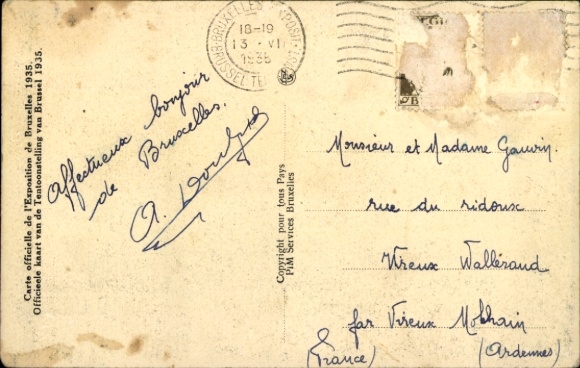 Carte officielle de l'Exposition de Bruxelles 1935.
Officieele kaart van de Tentoonstelling van Brussel 1935.
BRUXELLES
18-19
13 · VI
1935
BRUSSEL
Affectueux bonjour
de Bruxelles.
A.
Copyright pour tous Pays
PIM Services Bruxelles
Monsieur et Madame Gauvin.
rue du ridoux
Vireux Wallerand
par Vireux Molhain
(Ardennes)
(France)